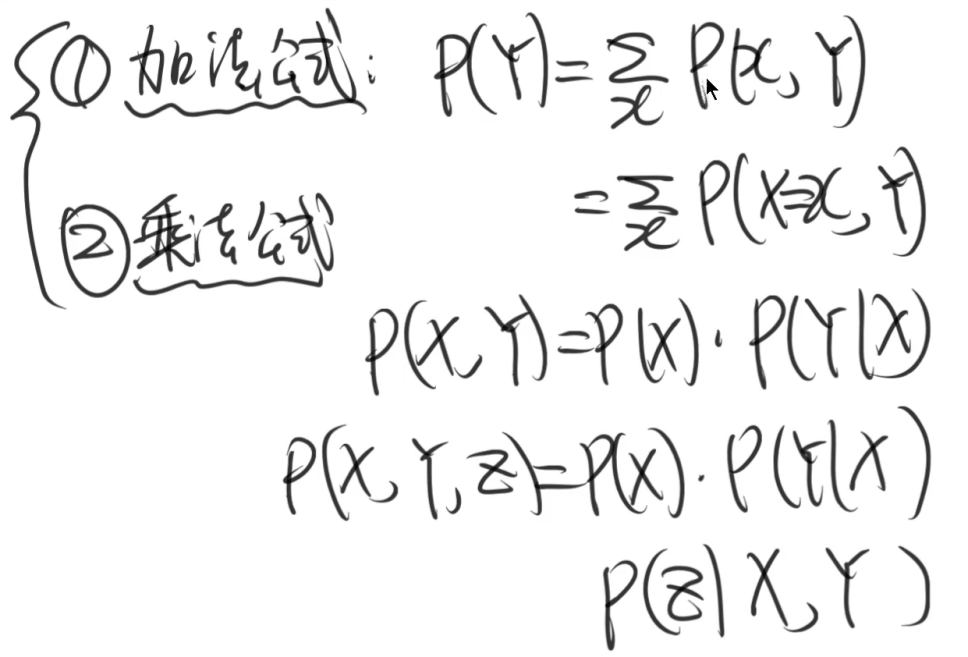 ① 加法公式: P(Y)=∑x P(x, Y)
=∑x P(X=x, Y)
② 乘法公式
P(X, Y)=P(X)·P(Y|X)
P(X, Y, Z)=P(X)·P(Y|X)
P(Z|X, Y)